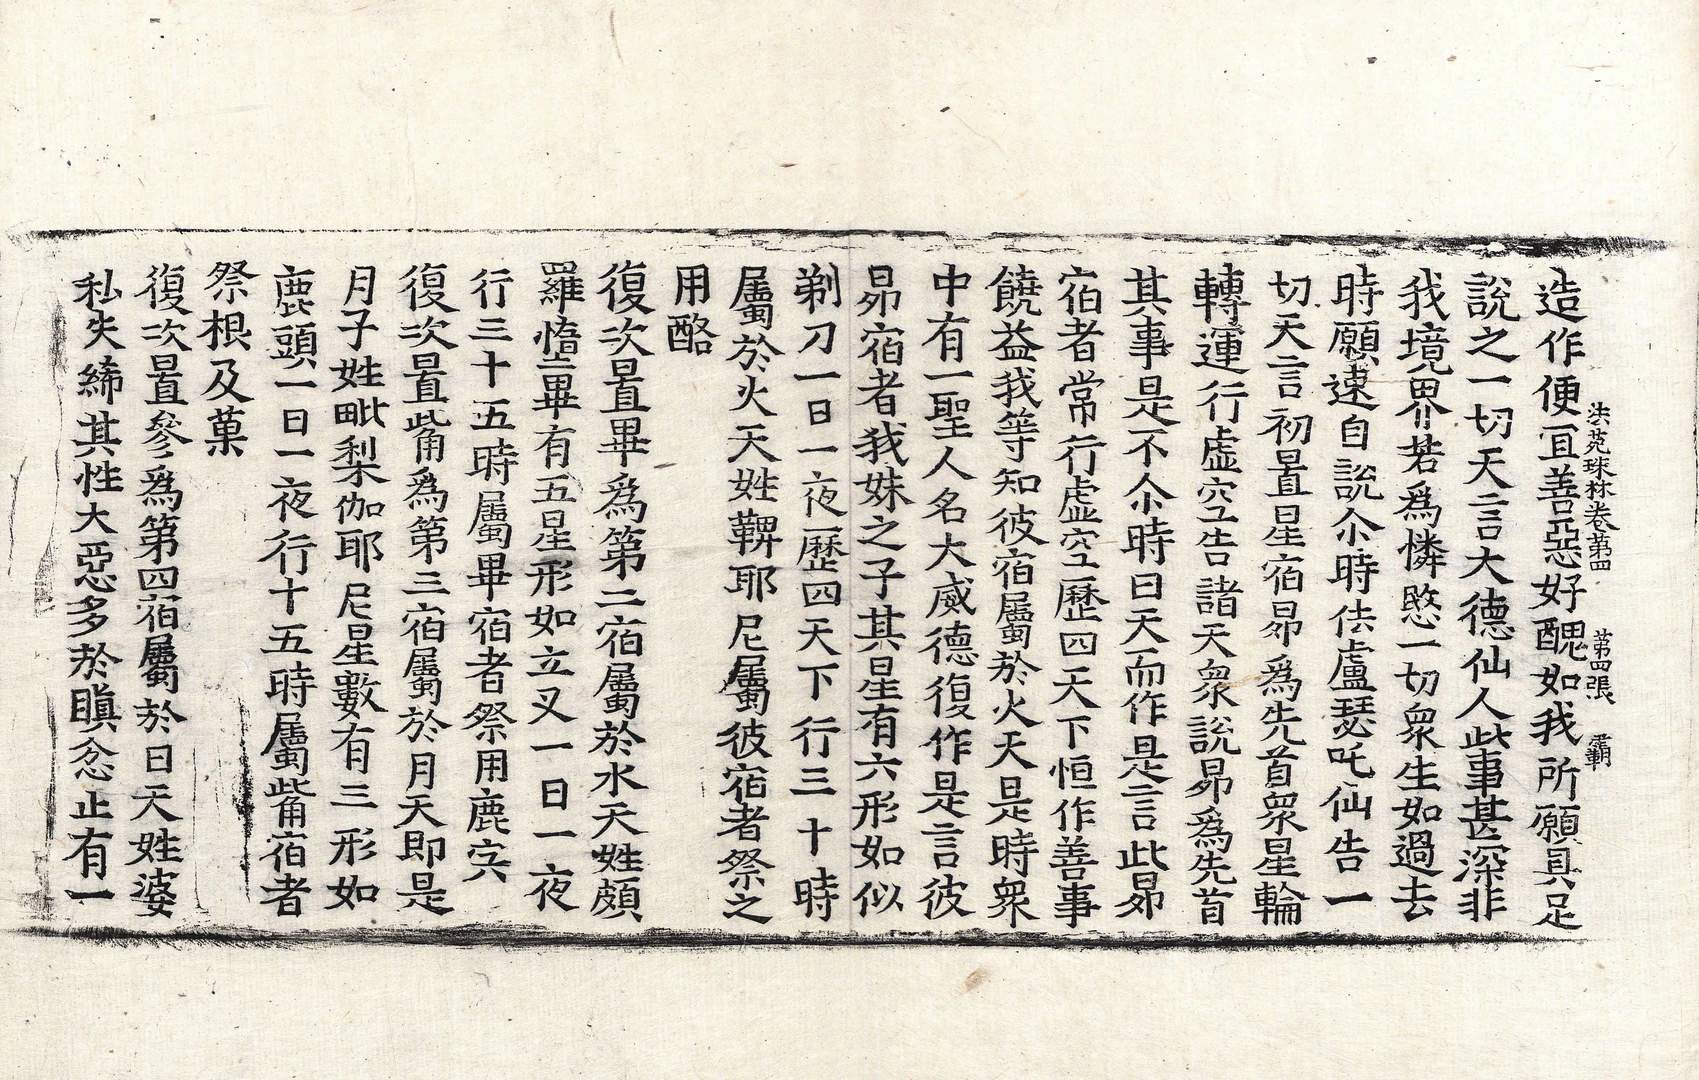 法苑珠林卷第四 第四張 覇
造作便宜善惡好醜如我所願具足
說之一切天言大德仙人此事甚深非
我境界若爲憐愍一切衆生如過去
時願速自說尒時佉盧瑟吒仙告一
切天言初置星宿昴爲先首衆星輪
轉運行虛空告諸天衆說昴爲先首
其事是不尒時日天而作是言此昴
宿者常行虛空歷四天下恒作善事
饒益我等知彼宿屬於火天是時衆
中有一聖人名大威德復作是言彼
昴宿者我妹之子其星有六形如似
剃刀一日一夜歷四天下行三十時
屬於火天姓鞞耶尼屬彼宿者祭之
用酪
復次置畢爲第二宿屬於水天姓頗
羅墮畢有五星形如立叉一日一夜
行三十五時屬畢宿者祭用鹿宍
復次置觜爲第三宿屬於月天即是
月子姓毗梨伽耶尼星數有三形如
鹿頭一日一夜行十五時屬觜宿者
祭根及菓
復次置參爲第四宿屬於日天姓婆
私失絺其性大惡多於瞋忿止有一